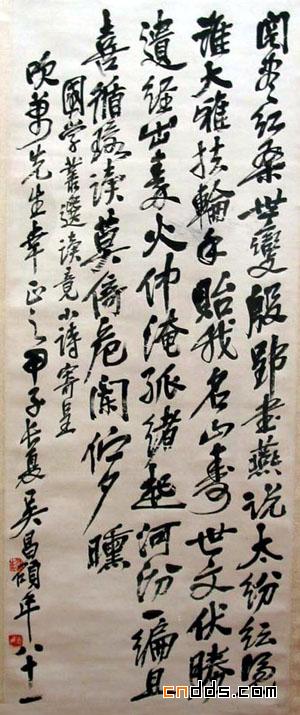 閱尽红桑世變殷郢書燕说太紛纭
誰大雅扶輪手貽我名山壽世文伏勝
遺經出秦火仲淹孤緒起河汾一編且
喜循環读莫倚危闌佇夕曛
國学叢選读竟小詩寄呈
吹萬先生幸正之甲子長夏吳昌碩年八十一
cndds.com